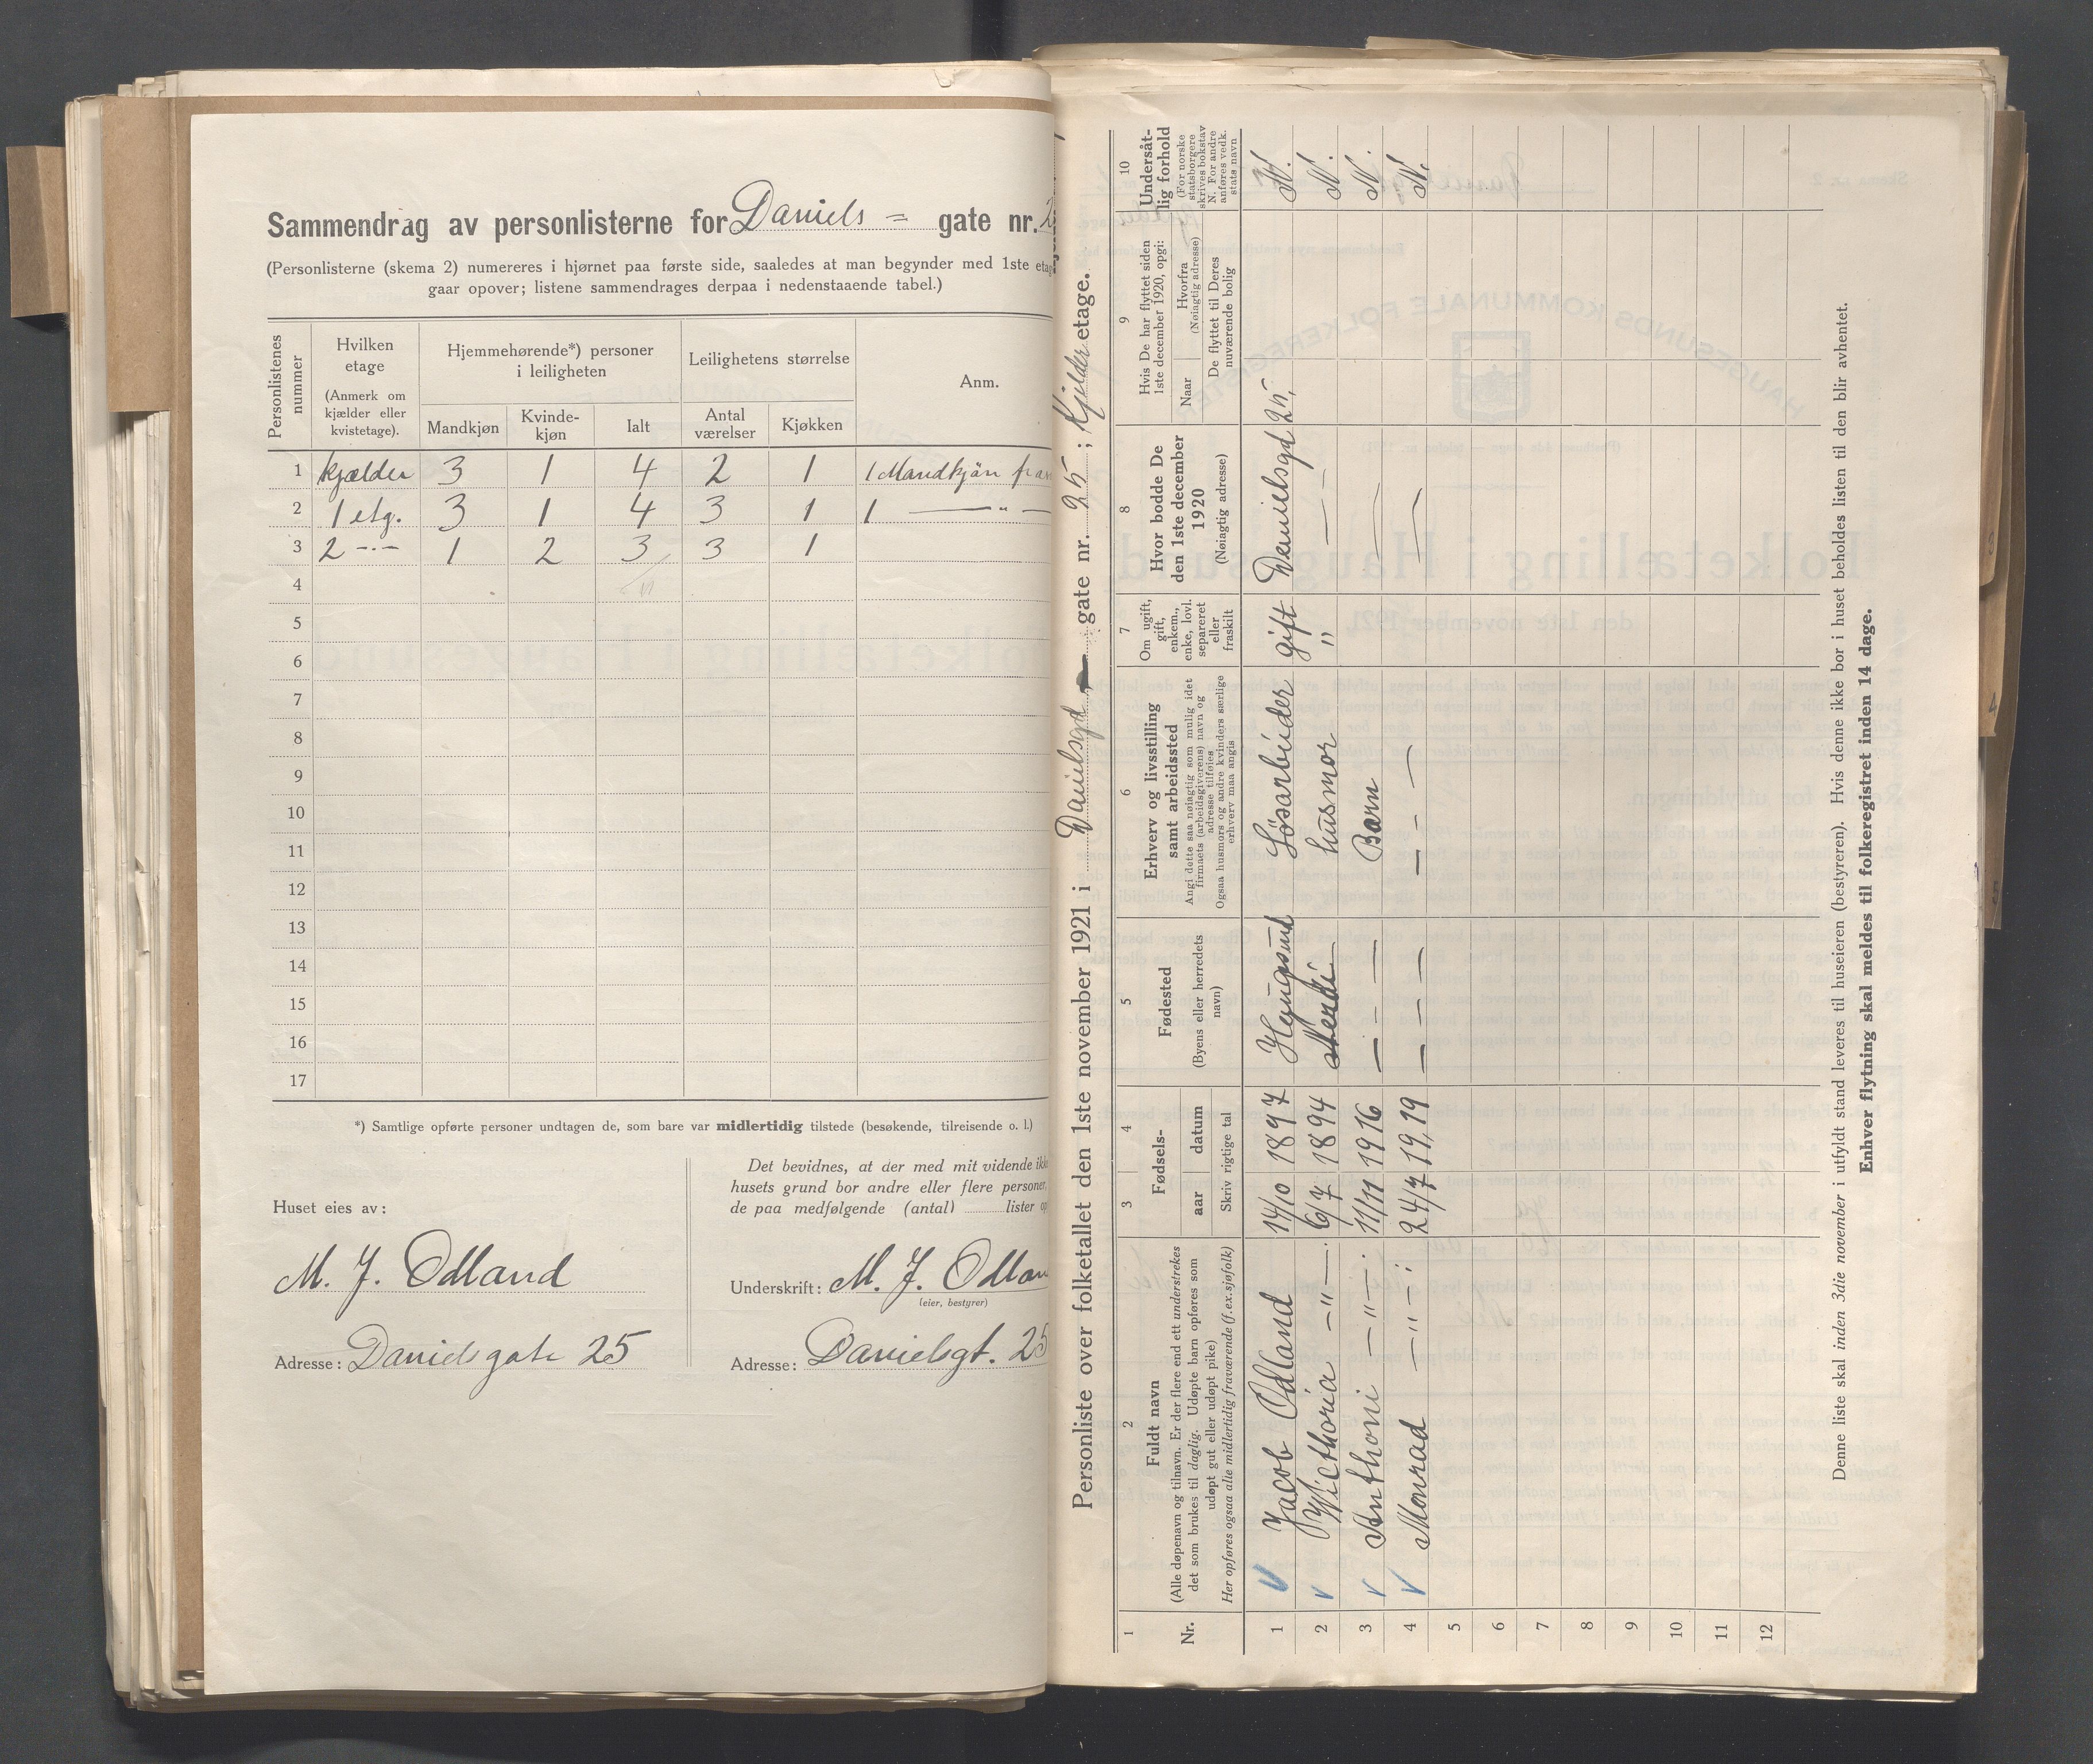 Sammendrag av personlisterne for Daniels = gate nr. 2
(Personlisterne (skema 2) numereres i hjørnet paa første side, saaledes at man begynder med 1ste etag
gaar opover; listene sammendrages derpaa i nedenstaaende tabel.)
Personlistenes nummer
Hvilken etage
(Anmerk om kjælder eller kvistetage).
Hjemmehørende*) personer i leiligheten
Leilighetens størrelse
Anm.
Mandkjøn
Kvinde-kjøn
Ialt
Antal værelser
Kjøkken
1 kjælder 3 1 4 2 1 1 Mandkjön fra
2 1 etg. 3 1 4 3 1 1 — " —
3 2 -·- 1 2 3 3 1
4
5
6
7
8
9
10
11
12
13
14
15
16
17
*) Samtlige opførte personer undtagen de, som bare var midlertidig tilstede (besøkende, tilreisende o. l.)
Huset eies av:
M. J. Odland
Adresse: Danielsgate 25
Det bevidnes, at der med mit vidende ikke
husets grund bor andre eller flere personer,
de paa medfølgende (antal) ........ lister op
Underskrift: M. J. Odlan
(eier, bestyrer)
Adresse: Danielsgt. 25
Personliste over folketallet den 1ste november 1921 i Danielsgd — gate nr. 25; Kjelder etage.
1
Nr.
2
Fuldt navn
(Alle døpenavn og tilnavn. Er der flere end ett understrekes
det som brukes til daglig. Udøpte barn opføres som
udøpt gut eller udøpt pike)
Her opføres ogsaa alle midlertidig fraværende (f. ex. sjøfolk)
3
4
Fødsels-
aar
datum
Skriv rigtige tal
5
Fødested
(Byens eller herredets navn)
6
Erhverv og livsstilling
samt arbeidsted
Angi dette saa nøiagtig som mulig idet
firmaets (arbeidsgiverens) navn og
adresse tilføies
Ogsaa husmors og andre kvinders særlige
erhverv maa angis
7
Om ugift,
gift,
enkem.,
enke, lovl.
separeret
eller
fraskilt
8
Hvor bodde De
den 1ste december
1920
(Nøiagtig adresse)
9
Hvis De har flyttet siden
1ste december 1920, opgi:
Naar
Hvorfra
(Nøiagtig adresse)
De flyttet til Deres
nuværende bolig
10
Undersåt-
lig forhold
(For norske
statsborgere
skrives bokstav
N. For andre
anføres vedk.
stats navn
1 V Jacob Odland 14/10 1897 Haugesund Lösarbeider gift Danielsgd 25, N.
2 v Wicthoria —"— 6/7 1894 husmor " — — N.
3 v Anthoni —"— 11/11 1916 — - — Barn — N.
4 V Monrad —"— 24/7 1919 — — — — - — — N.
5
6
7
8
9
10
11
12
Denne liste skal inden 3die november i utfyldt stand leveres til huseieren (bestyreren). Hvis denne ikke bor i huset beholdes listen til den blir avhentet.
Enhver flytning skal meldes til folkeregistret inden 14 dage.